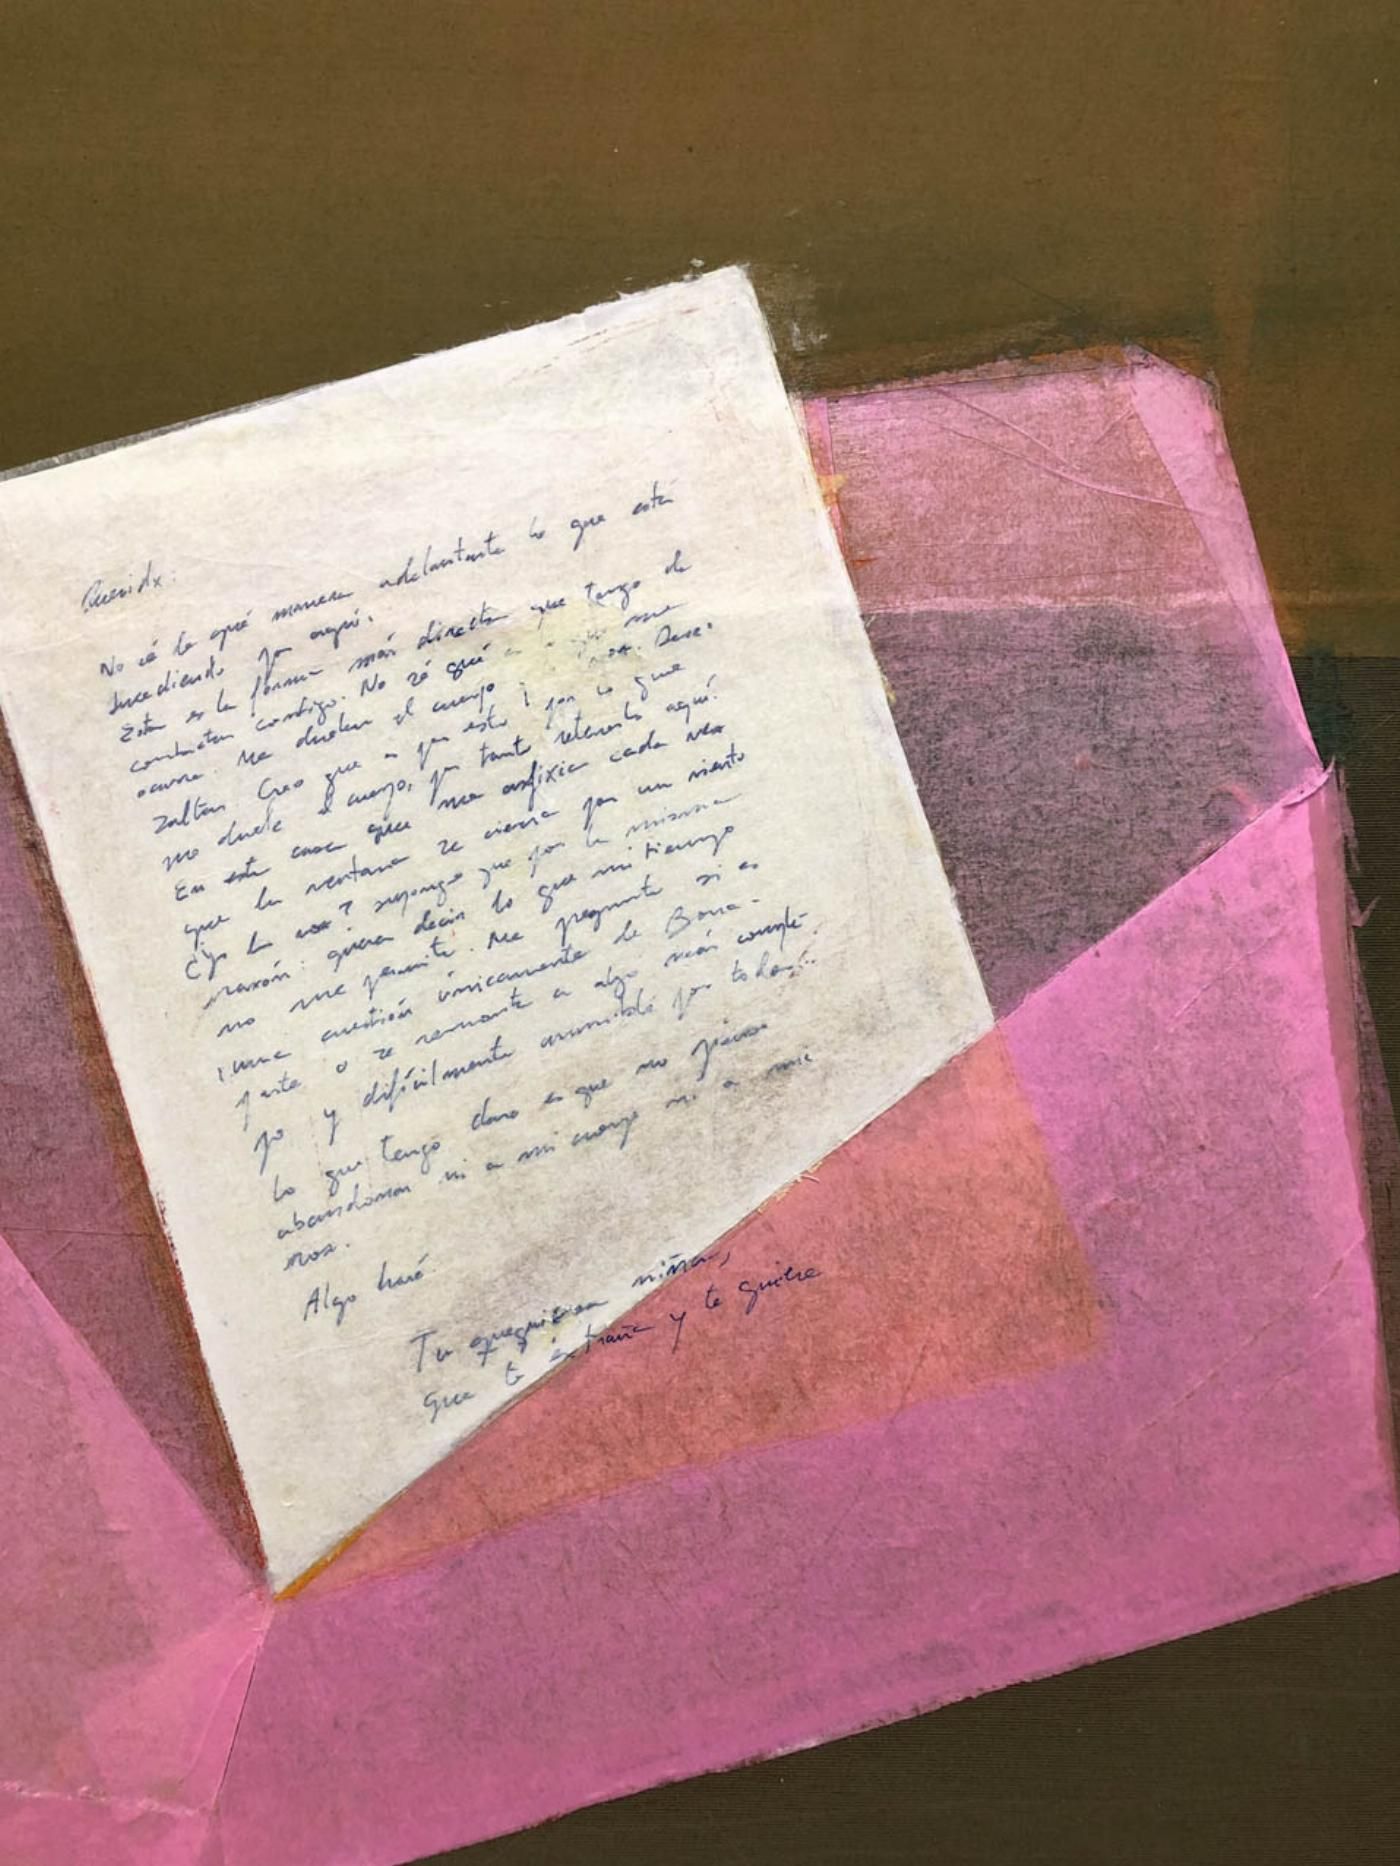 Queridx:
No sé de qué manera adelantarte lo que está
sucediendo por aquí.
Esta es la forma más directa que tengo de
contactar contigo. No sé qué es lo que me
ocurre. Me duelen el cuerpo y la voz. Dese.
saltar. Creo que es por esto por lo que
me duele el cuerpo, por tanto retenerlo aquí.
En esta casa que me asfixia cada vez
que la ventana se cierra por un viento
¿Y la voz? supongo que por la misma
razón: quiere decir lo que mi tiempo
no me permite. Me pregunto si es
una cuestión únicamente de
parte o se remonta a algo más comple-
jo y difícilmente asumible por
Lo que tengo claro es que no pienso
abandonar ni a mi cuerpo ni a mi
voz.
Algo haré.
Tu pequeña niña,
que te extraña y te quiere